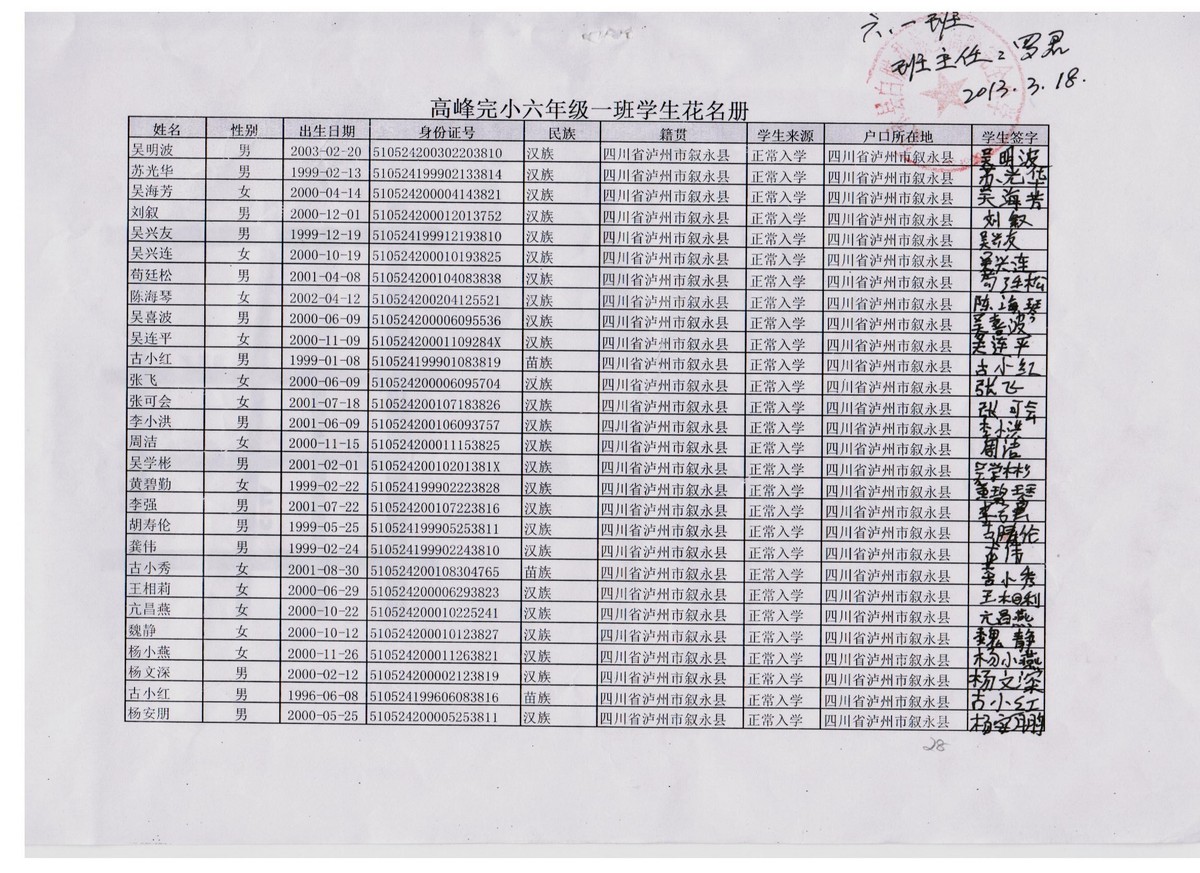 六.一班
班主任:罗君
2013.3.18.
高峰完小六年级一班学生花名册
姓名 性别 出生日期 身份证号 民族 籍贯 学生来源 户口所在地 学生签字
吴明波 男 2003-02-20 510524200302203810 汉族 四川省泸州市叙永县 正常入学 四川省泸州市叙永县 吴明波
苏光华 男 1999-02-13 510524199902133814 汉族 四川省泸州市叙永县 正常入学 四川省泸州市叙永县 苏光华
吴海芳 女 2000-04-14 510524200004143821 汉族 四川省泸州市叙永县 正常入学 四川省泸州市叙永县 吴海芳
刘叙 男 2000-12-01 510524200012013752 汉族 四川省泸州市叙永县 正常入学 四川省泸州市叙永县 刘叙
吴兴友 男 1999-12-19 510524199912193810 汉族 四川省泸州市叙永县 正常入学 四川省泸州市叙永县 吴兴友
吴兴连 女 2000-10-19 510524200010193825 汉族 四川省泸州市叙永县 正常入学 四川省泸州市叙永县 吴兴连
苟廷松 男 2001-04-08 510524200104083838 汉族 四川省泸州市叙永县 正常入学 四川省泸州市叙永县 苟廷松
陈海琴 女 2002-04-12 510524200204125521 汉族 四川省泸州市叙永县 正常入学 四川省泸州市叙永县 陈海琴
吴喜波 男 2000-06-09 510524200006095536 汉族 四川省泸州市叙永县 正常入学 四川省泸州市叙永县 吴喜波
吴连平 女 2000-11-09 51052420001109284X 汉族 四川省泸州市叙永县 正常入学 四川省泸州市叙永县 吴连平
古小红 男 1999-01-08 510524199901083819 苗族 四川省泸州市叙永县 正常入学 四川省泸州市叙永县 古小红
张飞 女 2000-06-09 510524200006095704 汉族 四川省泸州市叙永县 正常入学 四川省泸州市叙永县 张飞
张可会 女 2001-07-18 510524200107183826 汉族 四川省泸州市叙永县 正常入学 四川省泸州市叙永县 张可会
李小洪 男 2001-06-09 510524200106093757 汉族 四川省泸州市叙永县 正常入学 四川省泸州市叙永县 李小洪
周洁 女 2000-11-15 510524200011153825 汉族 四川省泸州市叙永县 正常入学 四川省泸州市叙永县 周洁
吴学彬 男 2001-02-01 51052420010201381X 汉族 四川省泸州市叙永县 正常入学 四川省泸州市叙永县 吴学彬
黄碧勤 女 1999-02-22 510524199902223828 汉族 四川省泸州市叙永县 正常入学 四川省泸州市叙永县
李强 男 2001-07-22 510524200107223816 汉族 四川省泸州市叙永县 正常入学 四川省泸州市叙永县
胡寿伦 男 1999-05-25 510524199905253811 汉族 四川省泸州市叙永县 正常入学 四川省泸州市叙永县
龚伟 男 1999-02-24 510524199902243810 汉族 四川省泸州市叙永县 正常入学 四川省泸州市叙永县
古小秀 女 2001-08-30 510524200108304765 苗族 四川省泸州市叙永县 正常入学 四川省泸州市叙永县 古小秀
王相莉 女 2000-06-29 510524200006293823 汉族 四川省泸州市叙永县 正常入学 四川省泸州市叙永县 王相利
亢昌燕 女 2000-10-22 510524200010225241 汉族 四川省泸州市叙永县 正常入学 四川省泸州市叙永县 亢昌燕
魏静 女 2000-10-12 510524200010123827 汉族 四川省泸州市叙永县 正常入学 四川省泸州市叙永县 魏静
杨小燕 女 2000-11-26 510524200011263821 汉族 四川省泸州市叙永县 正常入学 四川省泸州市叙永县 杨小燕
杨文深 男 2000-02-12 510524200002123819 汉族 四川省泸州市叙永县 正常入学 四川省泸州市叙永县 杨文深
古小红 男 1996-06-08 510524199606083816 苗族 四川省泸州市叙永县 正常入学 四川省泸州市叙永县 古小红
杨安朋 男 2000-05-25 510524200005253811 汉族 四川省泸州市叙永县 正常入学 四川省泸州市叙永县 杨安朋
28